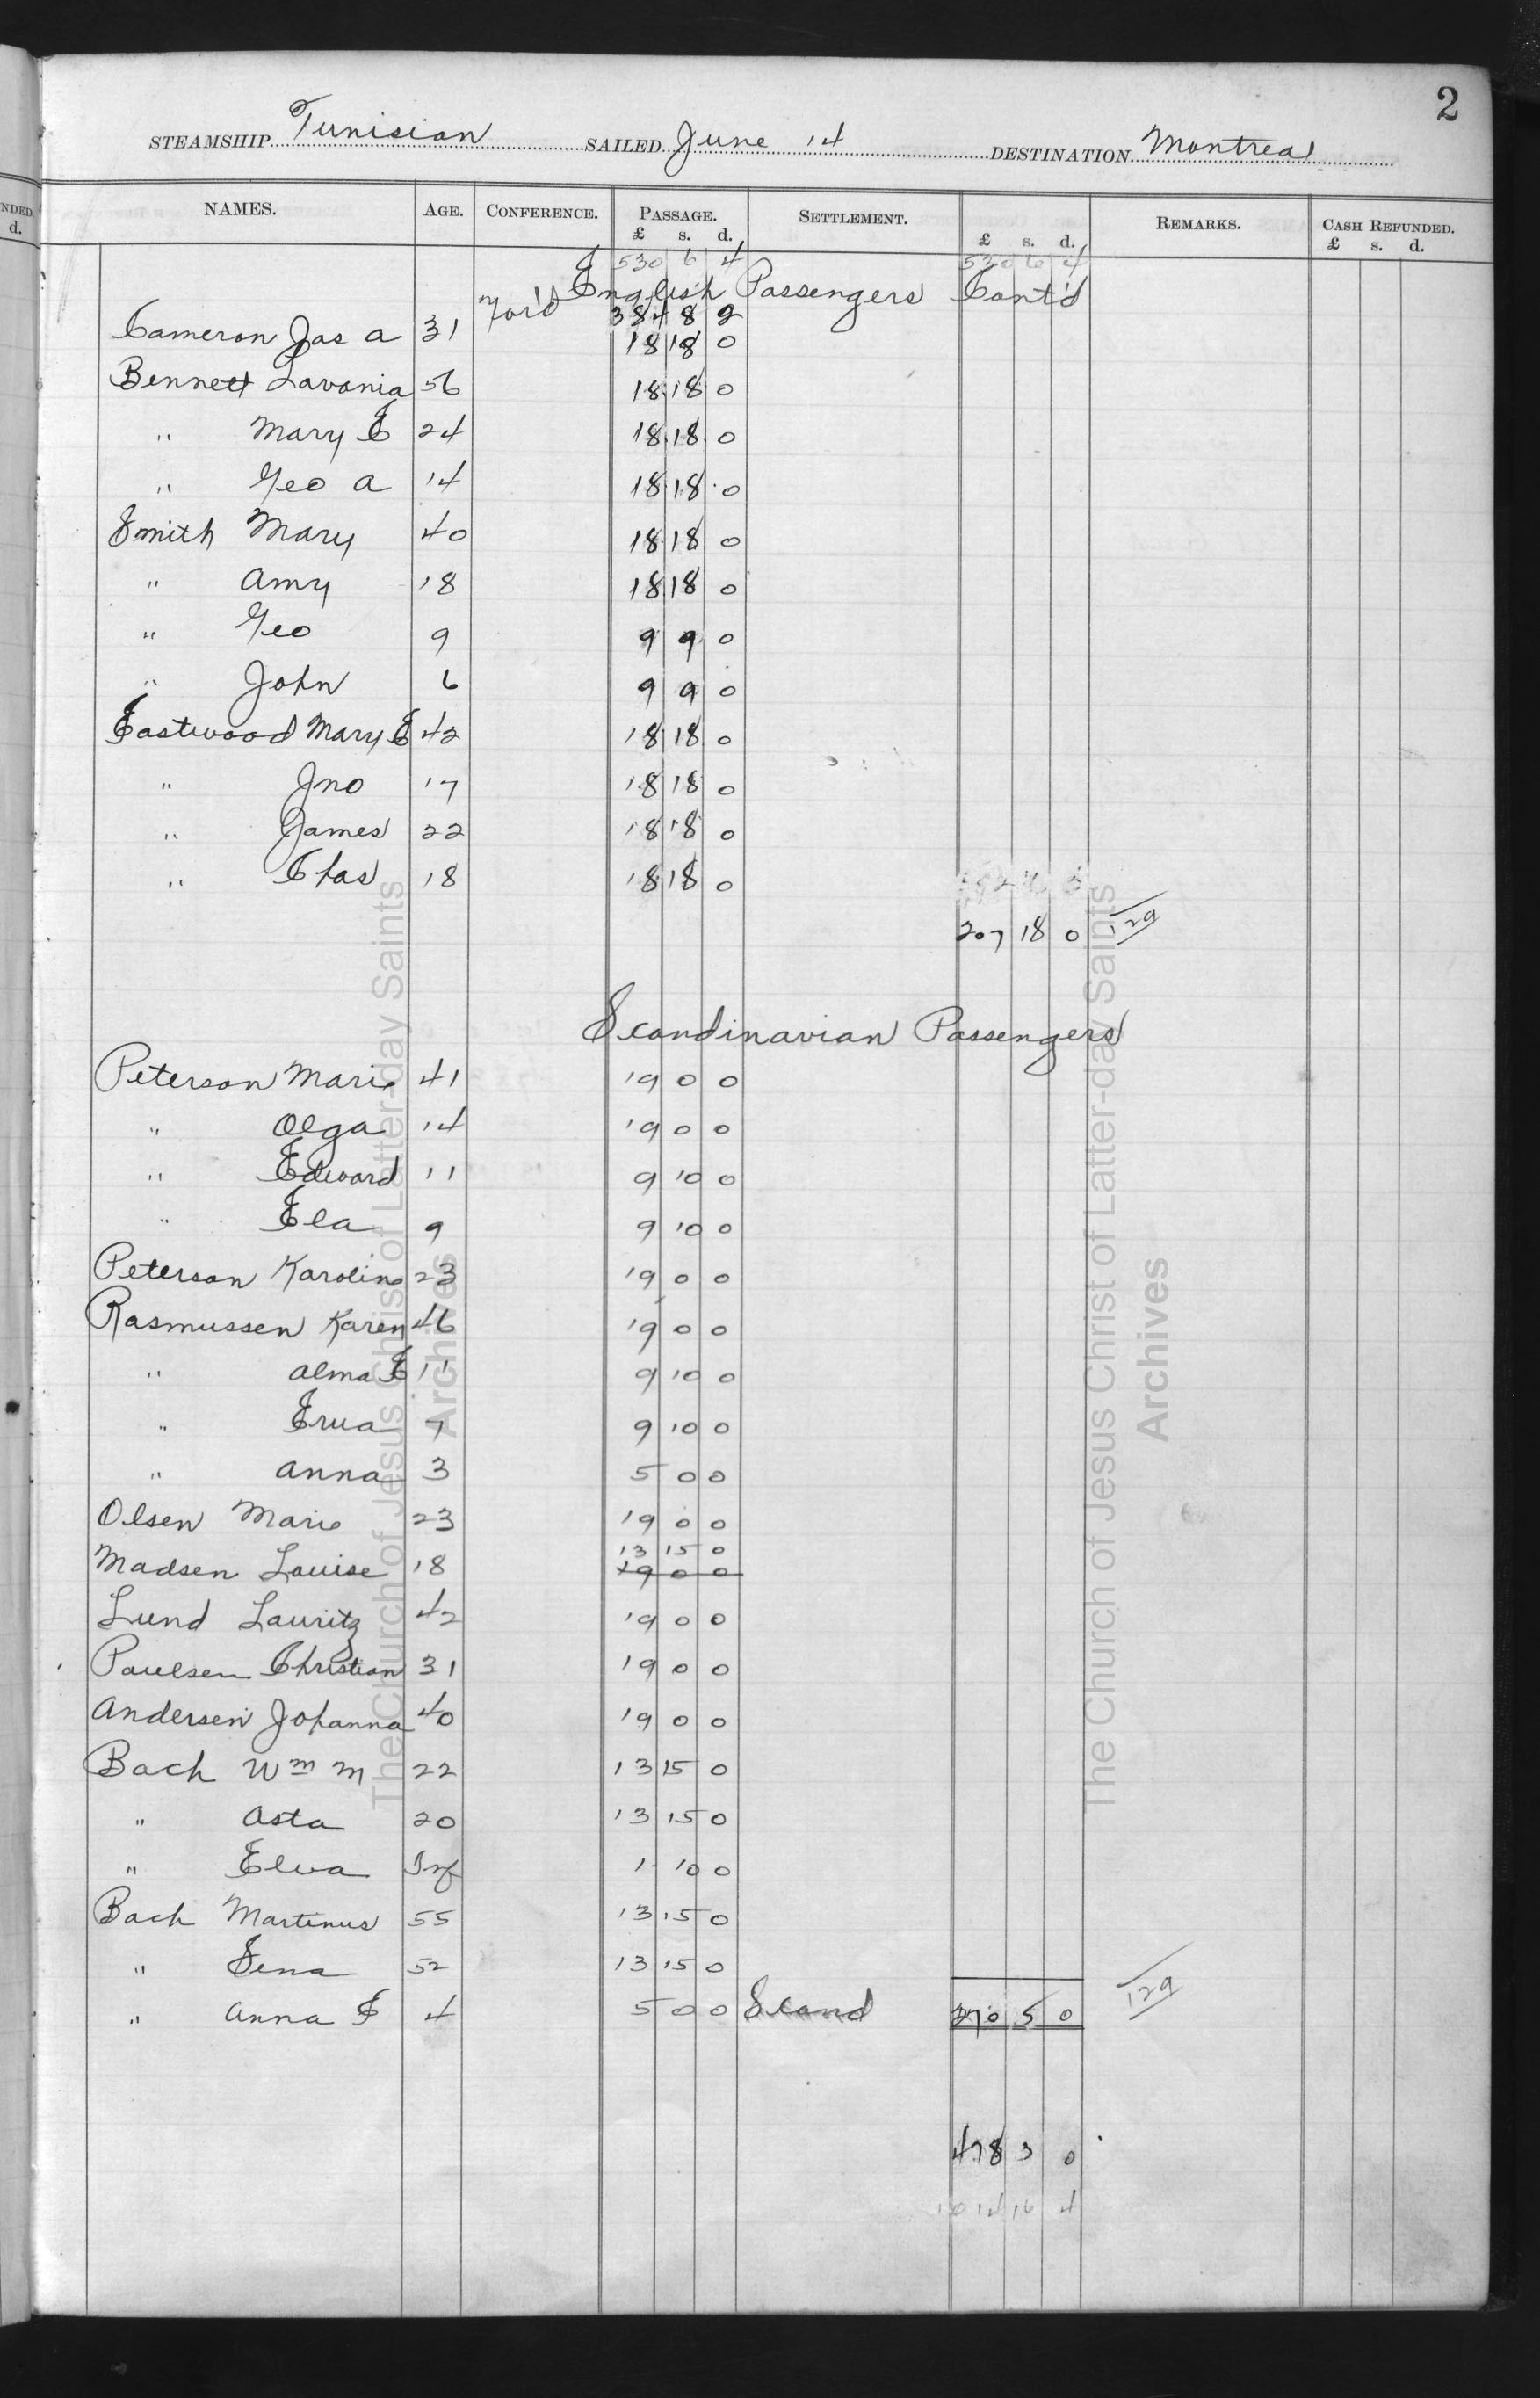 2
STEAMSHIP Tunisian SAILED June 14 DESTINATION Montreal
NDED.
d.
NAMES. AGE. CONFERENCE. PASSAGE. SETTLEMENT. REMARKS. CASH REFUNDED.
£ s. d. £ s. d. £ s. d.
530 6 4 530 6 4
English Passengers Cont'd
384 8 2
Cameron Jas A 31 18 18 0
Bennett Lavania 56 18 18 0
" Mary E 24 18 18 0
" Geo A 14 18 18 0
Smith Mary 40 18 18 0
" Amy 18 18 18 0
" Geo 9 9 9 0
" John 6 9 9 0
Eastwood Mary E 42 18 18 0
" Jno 17 18 18 0
" James 22 18 18 0
" Chas 18 18 18 0
207 18 0 129
Scandinavian Passengers
Peterson Marie 41 19 0 0
" Olga 14 19 0 0
" Edward 11 9 10 0
" Ela 9 9 10 0
Peterson Karoline 23 19 0 0
Rasmussen Karen 46 19 0 0
" Alma E 11 9 10 0
" Erua 7 9 10 0
" Anna 3 5 0 0
Olsen Marie 23 19 0 0
13 15 0
Madsen Louise 18 19 0 0
Lund Lauritz 42 19 0 0
Paulsen Christian 31 19 0 0
Andersen Johanna 40 19 0 0
Bach Wm M 22 13 15 0
" Asta 20 13 15 0
" Elva Inf 1 10 0
Bach Martinus 55 13 15 0
" Sena 52 13 15 0
" Anna E 4 5 0 0 Scand 270 5 0 129
478 3 0
1014 16 4
The Church of Jesus Christ of Latter-day Saints
Archives
The Church of Jesus Christ of Latter-day Saints
Archives